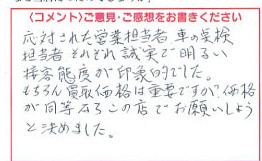 〈コメント〉ご意見・ご感想をお書きください
応対された営業担当者、車の点検
担当者それぞれ誠実で明るい
接客態度が印象的でした。
もちろん買取価格は重要ですが、価格
が同等ならこの店でお願いしよう
と決めました。